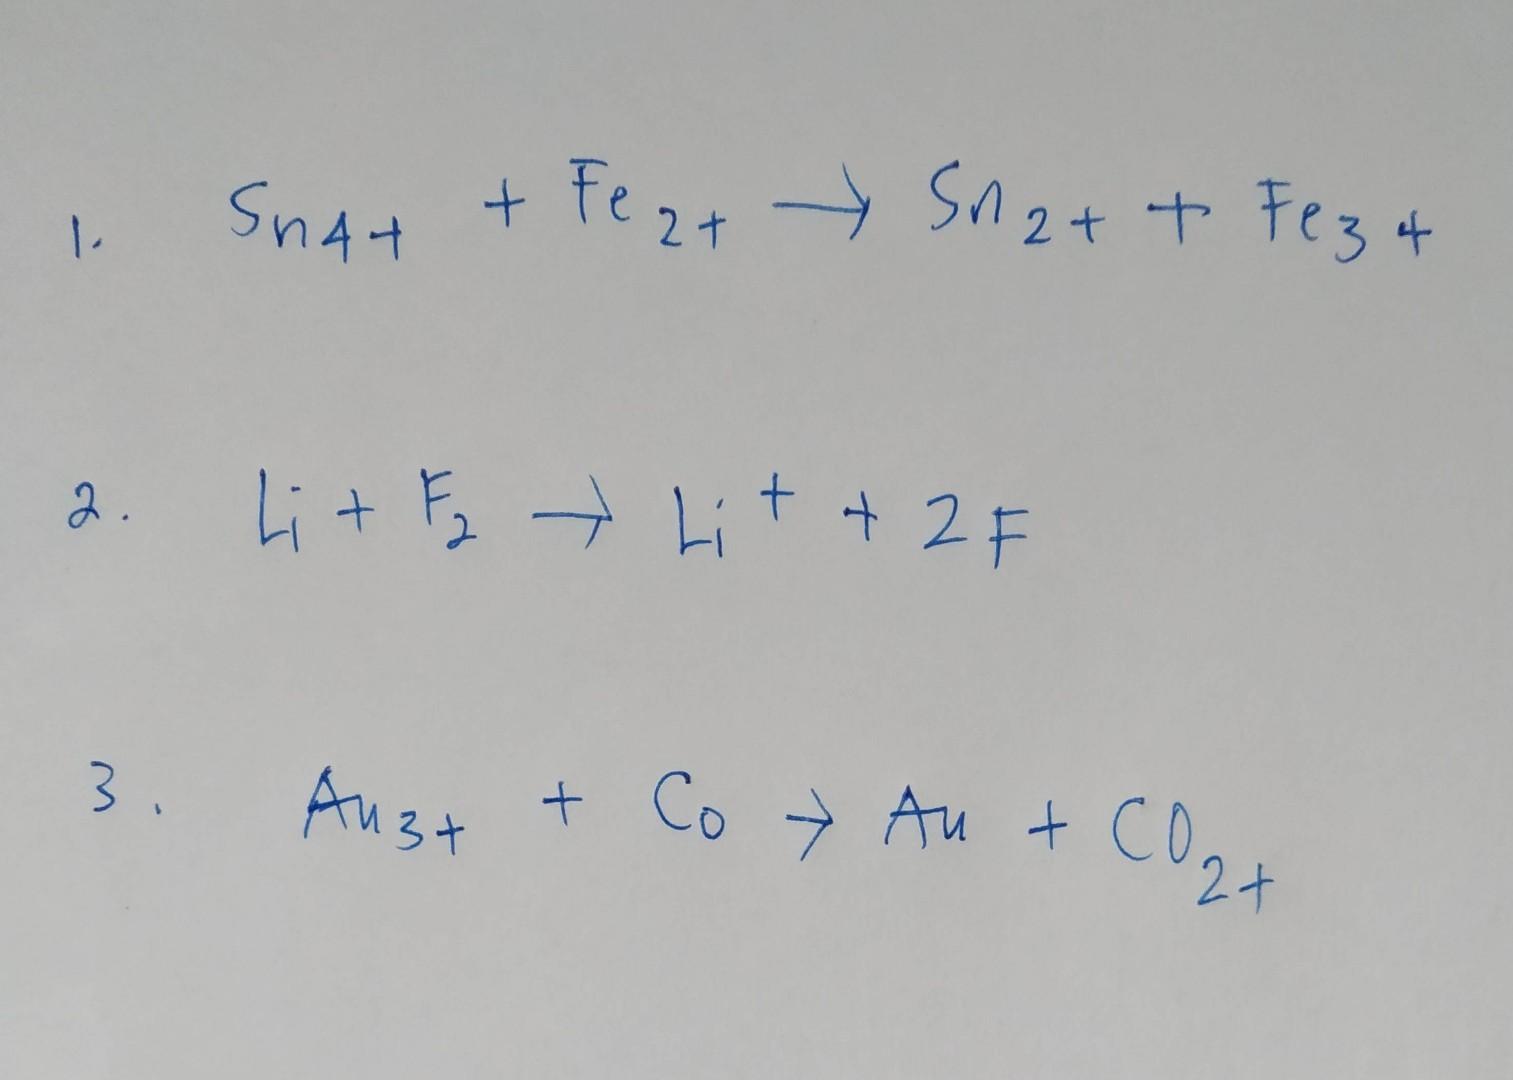 1. Sn4+ + Fe2+ → Sn2+ + Fe3+
2. Li + F2 → Li+ + 2F
3. Au3+ + Co → Au + CO2+